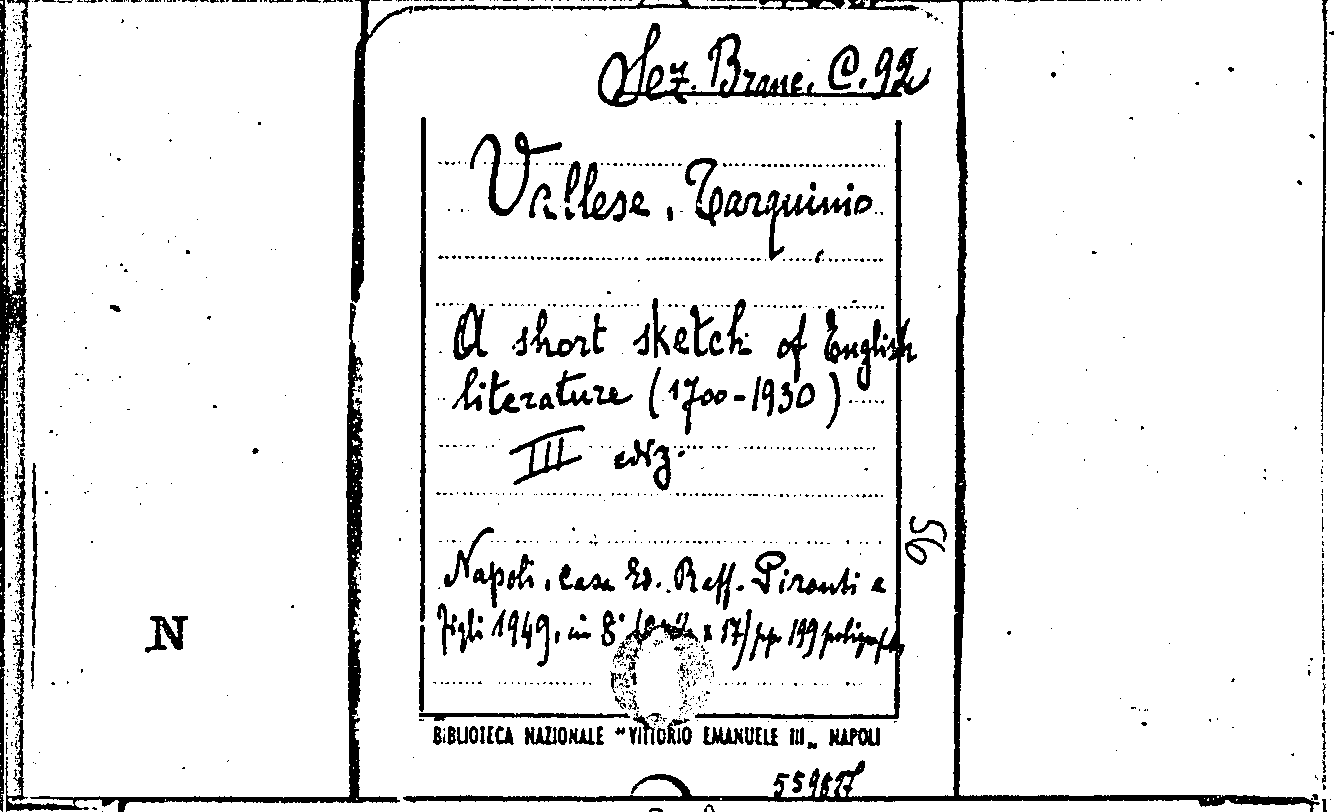 Sez. Branc. C. 92
Vallese, Tarquinio
A short sketch of English
literature (1700-1930)
III ediz.
56
Napoli, Casa Ed. Raff. Pironti e
Figli 1949, in 8° x 17) pp. 199 poligraf.
N
BIBLIOTECA NAZIONALE "VITTORIO EMANUELE III„ NAPOLI